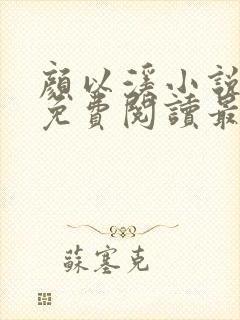 顏以溪小說
免費閱讀最
蘇塞克